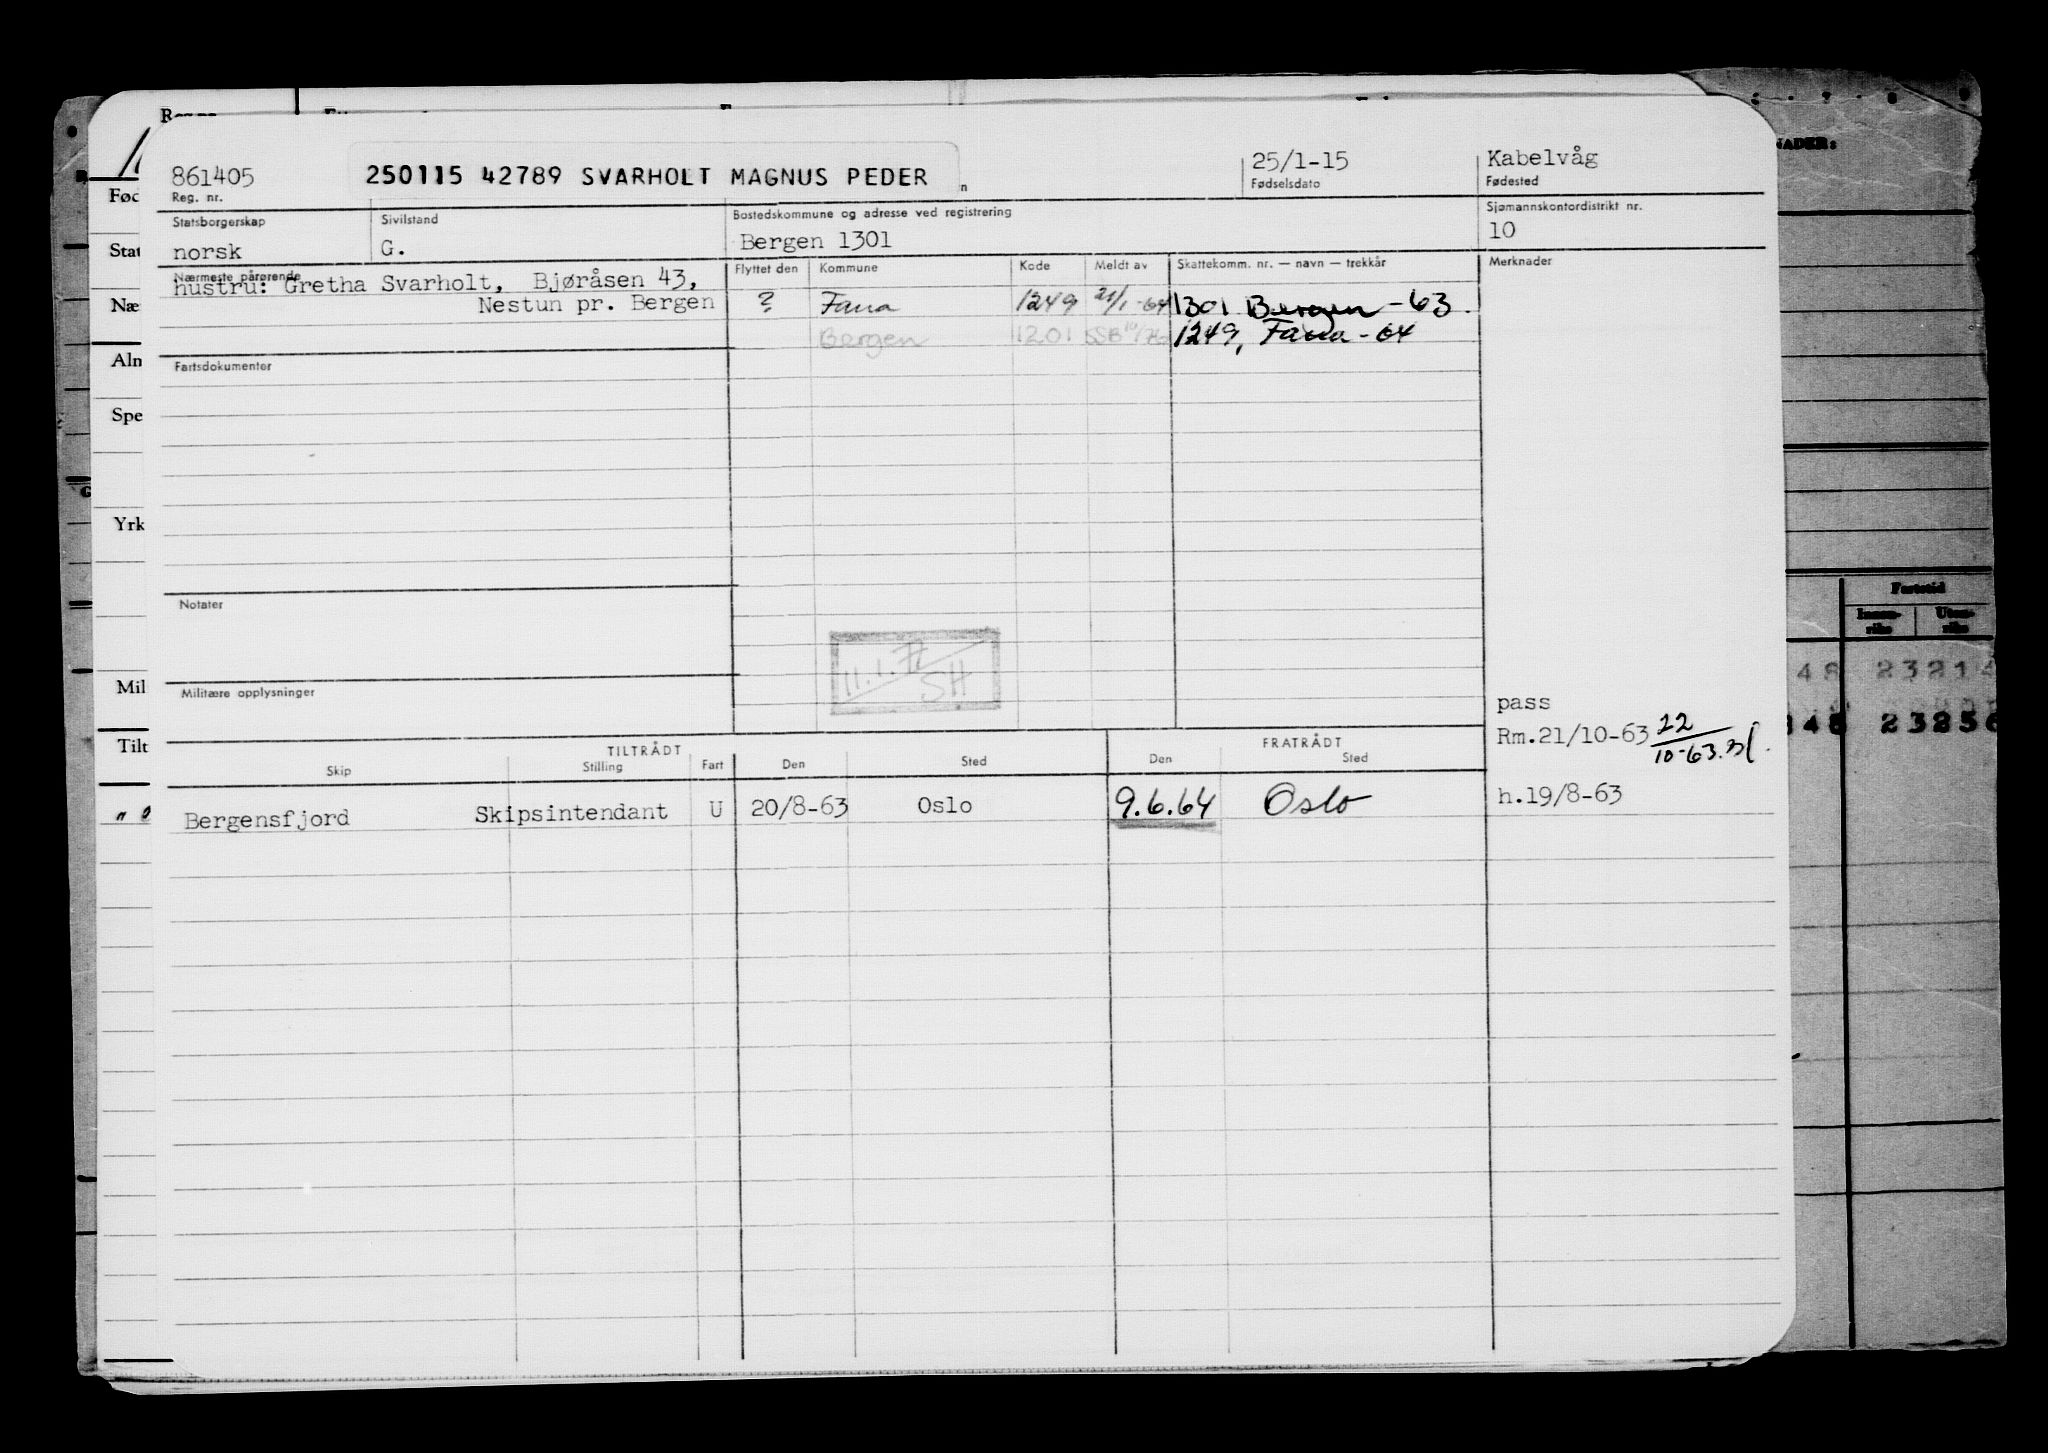 861405 250115 42789 SVARHOLT MAGNUS PEDER n 25/1-15 Kabelvåg
Reg. nr. Fødselsdato Fødested
Statsborgerskap Sivilstand Bostedskommune og adresse ved registrering Sjømannskontordistrikt nr.
norsk G. Bergen 1301 10
Nærmeste pårørende Flyttet den Kommune Kode Meldt av Skattekomm. nr. — navn — trekkår Merknader
hustru: Gretha Svarholt, Bjøråsen 43,
Nestun pr. Bergen ? Fana 1249 21/1-64 1301 Bergen -63.
Bergen 1201 SSB 1249, Fana - 64
Fartsdokumenter
Notater
11.1.77 SH
Militære opplysninger
pass
Rm.21/10-63 22/10-63.
TILTRÅDT FRATRÅDT
Skip Stilling Fart Den Sted Den Sted
Bergensfjord Skipsintendant U 20/8-63 Oslo 9.6.64 Oslo h.19/8-63
Fød
Stat
Næ
Aln
Spe
Yrk
Mil
Tilt
NADER:
Fartstid
Innen-
riks
Uten-
riks
48 23214
348 23256